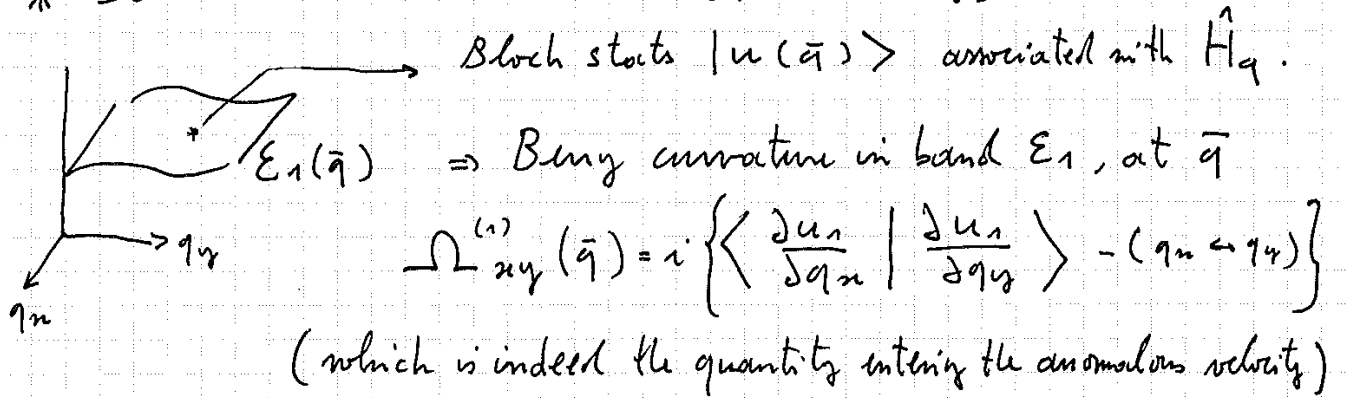 Bloch states |u(q̄)> associated with Ĥ_q.
ε₁(q̄) ⇒ Berry curvature in band ε₁, at q̄
q_y
Ω_xy^(1)(q̄) = i {⟨ ∂u₁/∂q_x | ∂u₁/∂q_y ⟩ - (q_x ↔ q_y)}
q_x
(which is indeed the quantity entering the anomalous velocity)